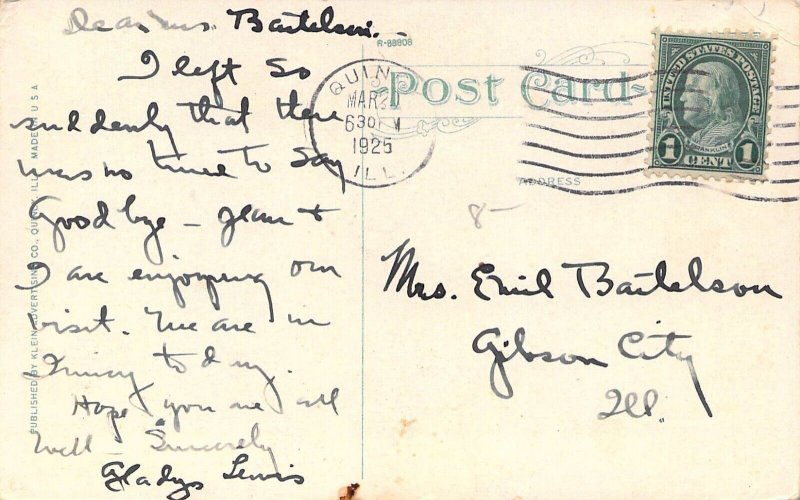 Dear Mrs. Bartelson. -
I left so
suddenly that there
was no time to say
Goodbye - Jean &
I are enjoying our
visit. We are in
Quincy to day.
Hope you are all
Well - Sincerely
Gladys Lewis
PUBLISHED BY KLEIN ADVERTISING CO., QUINCY, ILL. MADE IN U S A
R-88808
Post Card
QUIN
MAR
630 M
1925
ILL.
UNITED STATES POSTAGE
FRANKLIN
1 CENT 1
ADDRESS
8-
Mrs. Emil Bartelson
Gibson City
Ill.